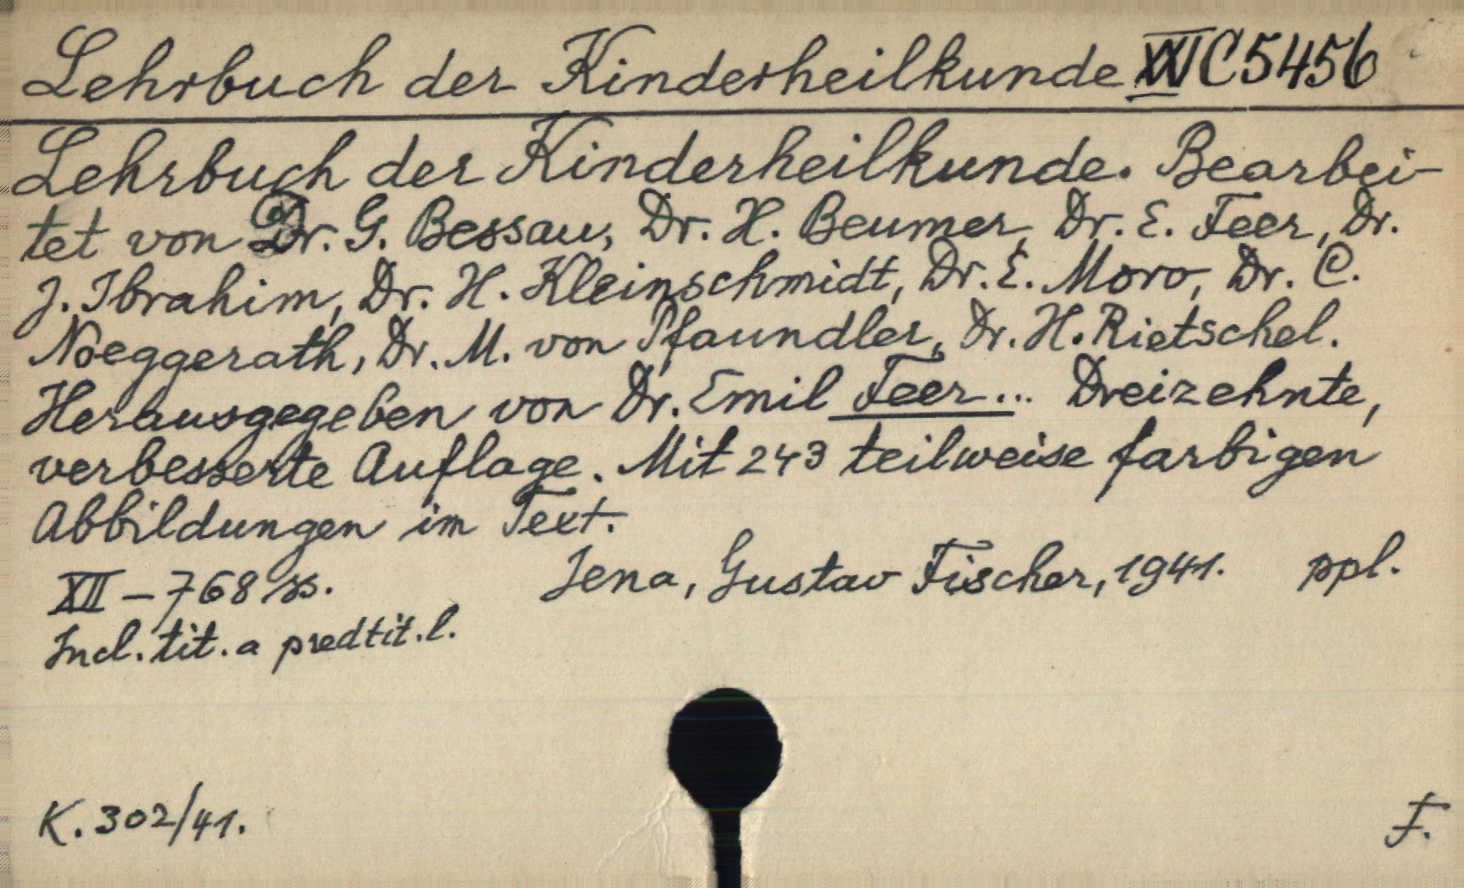 Lehrbuch der Kinderheilkunde XVI C 5456
Lehrbuch der Kinderheilkunde. Bearbei-
tet von Dr. G. Bessau, Dr. H. Beumer, Dr. E. Feer, Dr.
J. Ibrahim, Dr. H. Kleinschmidt, Dr. E. Moro, Dr. C.
Noeggerath, Dr. M. von Pfaundler, Dr. H. Rietschel.
Herausgegeben von Dr. Emil Feer... Dreizehnte,
verbesserte Auflage. Mit 243 teilweise farbigen
Abbildungen im Text.
XII - 768 ss. Jena, Gustav Fischer, 1941. ppl.
Incl. tit. a predtit. l.
K. 302/41. F.